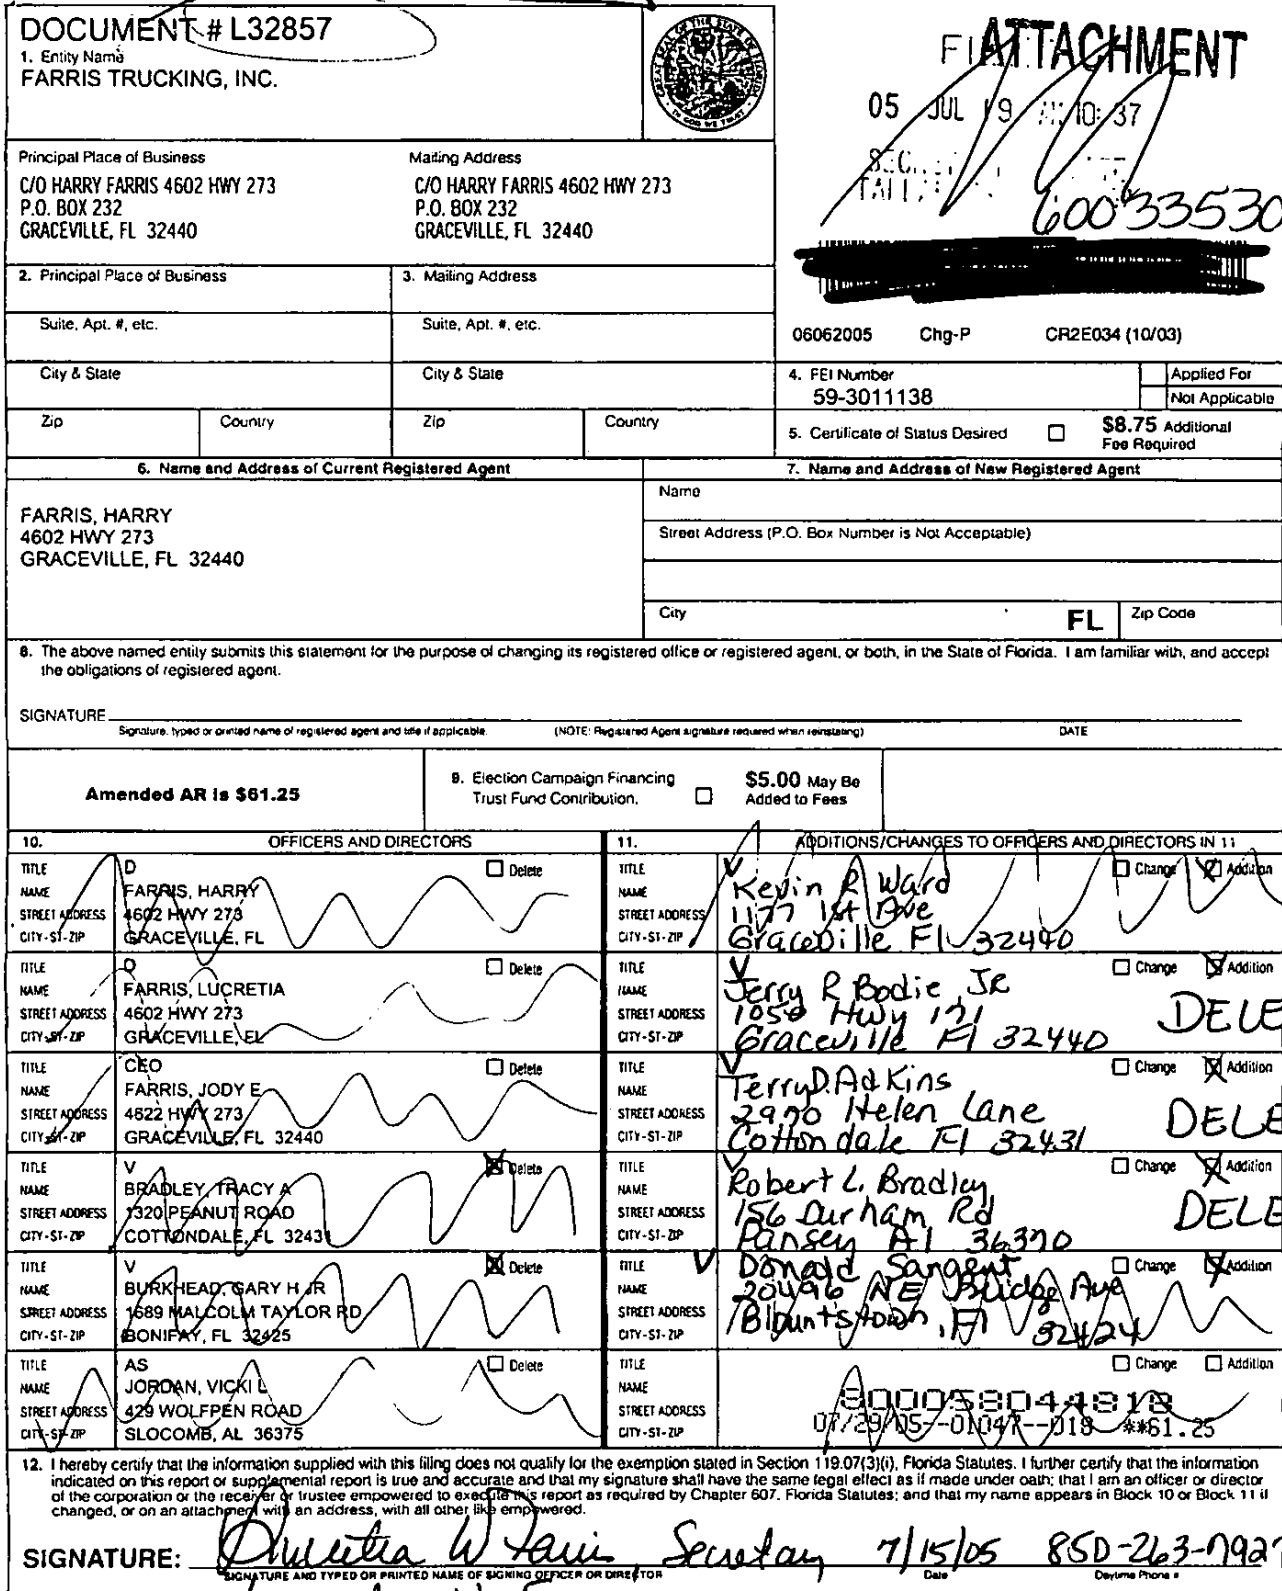 DOCUMENT # L32857
1. Entity Name
FARRIS TRUCKING, INC.
ATTACHMENT
05 JUL 19 AM 10:37
60033530
Principal Place of Business
C/O HARRY FARRIS 4602 HWY 273
P.O. BOX 232
GRACEVILLE, FL 32440
Mailing Address
C/O HARRY FARRIS 4602 HWY 273
P.O. BOX 232
GRACEVILLE, FL 32440
2. Principal Place of Business
3. Mailing Address
Suite, Apt. #, etc.
Suite, Apt. #, etc.
06062005 Chg-P CR2E034 (10/03)
City & State
City & State
4. FEI Number
59-3011138
Applied For
Not Applicable
Zip Country
Zip Country
5. Certificate of Status Desired
$8.75 Additional
Fee Required
6. Name and Address of Current Registered Agent
FARRIS, HARRY
4602 HWY 273
GRACEVILLE, FL 32440
7. Name and Address of New Registered Agent
Name
Street Address (P.O. Box Number is Not Acceptable)
City FL Zip Code
8. The above named entity submits this statement for the purpose of changing its registered office or registered agent, or both, in the State of Florida. I am familiar with, and accept
the obligations of registered agent.
SIGNATURE
Signature, typed or printed name of registered agent and title if applicable. (NOTE: Registered Agent signature required when reinstating) DATE
Amended AR is $61.25
9. Election Campaign Financing
Trust Fund Contribution.
$5.00 May Be
Added to Fees
10. OFFICERS AND DIRECTORS
TITLE D Delete
NAME FARRIS, HARRY
STREET ADDRESS 4602 HWY 273
CITY-ST-ZIP GRACEVILLE, FL
TITLE D Delete
NAME FARRIS, LUCRETIA
STREET ADDRESS 4602 HWY 273
CITY-ST-ZIP GRACEVILLE, FL
TITLE CEO Delete
NAME FARRIS, JODY E
STREET ADDRESS 4622 HWY 273
CITY-ST-ZIP GRACEVILLE, FL 32440
TITLE V Delete
NAME BRADLEY, TRACY A
STREET ADDRESS 1320 PEANUT ROAD
CITY-ST-ZIP COTTONDALE, FL 32431
TITLE V Delete
NAME BURKHEAD, GARY H JR
STREET ADDRESS 1689 MALCOLM TAYLOR RD
CITY-ST-ZIP BONIFAY, FL 32425
TITLE AS Delete
NAME JORDAN, VICKI L
STREET ADDRESS 429 WOLFPEN ROAD
CITY-ST-ZIP SLOCOMB, AL 36375
11. ADDITIONS/CHANGES TO OFFICERS AND DIRECTORS IN 11
TITLE V Change Addition
NAME Kevin R Ward
STREET ADDRESS 1177 1st Ave
CITY-ST-ZIP Graceville Fl 32440
TITLE V Change Addition
NAME Jerry R Bodie, JR
STREET ADDRESS 1050 Hwy 171 DELE
CITY-ST-ZIP Graceville Fl 32440
TITLE V Change Addition
NAME Terry D. Adkins
STREET ADDRESS 2970 Helen Lane DELE
CITY-ST-ZIP Cottondale Fl 32431
TITLE V Change Addition
NAME Robert L. Bradley
STREET ADDRESS 156 Durham Rd DELE
CITY-ST-ZIP Pansey Al 36370
TITLE V Change Addition
NAME Donald Sargent
STREET ADDRESS 20496 NE Bridge Ave
CITY-ST-ZIP Blountstown, Fl 32424
TITLE Change Addition
NAME 800058044818
STREET ADDRESS 07/29/05--01047--018 **61.25
CITY-ST-ZIP
12. I hereby certify that the information supplied with this filing does not qualify for the exemption stated in Section 119.07(3)(i), Florida Statutes. I further certify that the information
indicated on this report or supplemental report is true and accurate and that my signature shall have the same legal effect as if made under oath; that I am an officer or director
of the corporation or the receiver or trustee empowered to execute this report as required by Chapter 607, Florida Statutes; and that my name appears in Block 10 or Block 11 if
changed, or on an attachment with an address, with all other like empowered.
SIGNATURE: Lucretia W Farris, Secretary 7/15/05 850-263-7927
SIGNATURE AND TYPED OR PRINTED NAME OF SIGNING OFFICER OR DIRECTOR Date Daytime Phone #